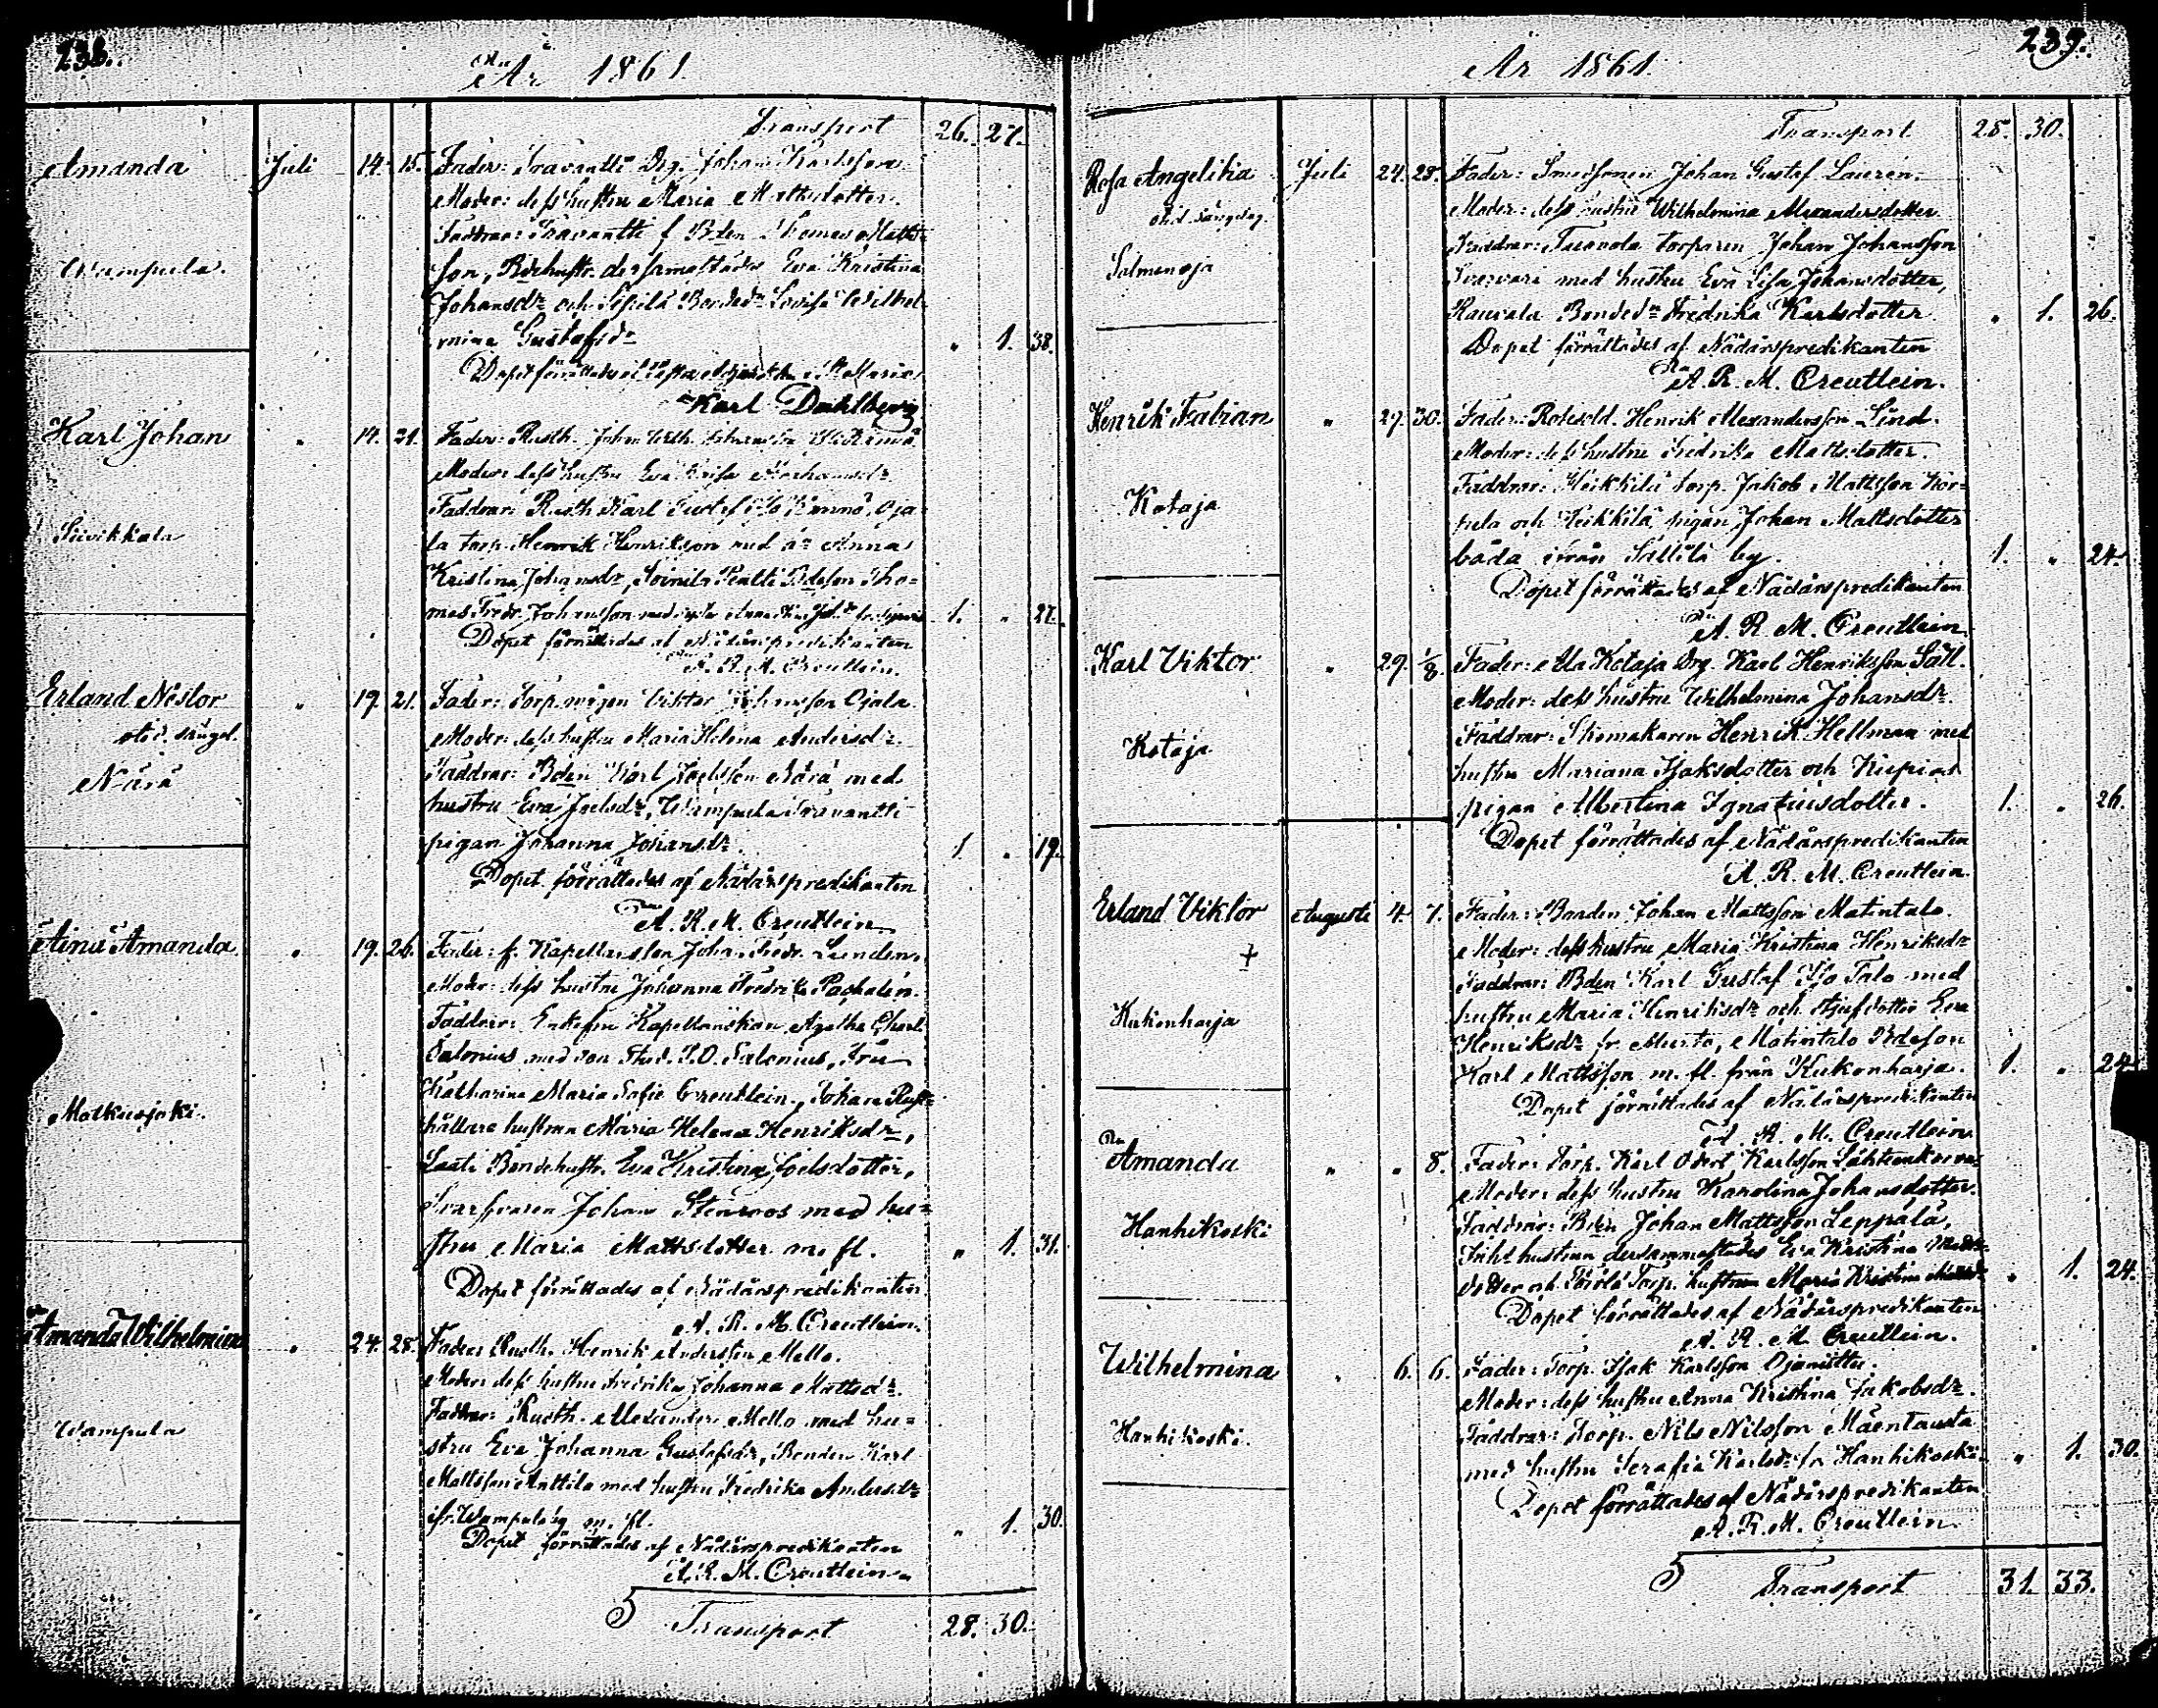 236.
År 1861
Transport 26. 27.
Amanda Juli 14. 15. Fader: Drg. Johan Karlsson
Moder: dess hustru Maria Mattsdotter.
Wampula.
Faddrar: f. Bden Thomas Matts-
son, Bdehustr. dersammastädes Eva Kristina
Johansdr och Bondedr Lovisa Wilhel-
mina Gustafsdr „ 1. 38.
Karl Dahlberg
Karl Johan „ 14. 21. Fader: Rusth. Johan
Moder: dess hustru Eva
Faddrar: Rusth Karl Gustaf Oja-
Siivikkala
la torp. Henrik Henriksson med Anna
Kristina Johansdr, Pentti Bdeson Tho-
mas Fredr. Johansson med 1. „ 27.
Dopet förrättades af Nådårspredikanten
A. R. M. Creutlein.
Erland Nestor „ 19. 21. Fader: Viktor Johansson Ojala
Moder: dess hustru Maria Helena Andersdr.
Faddrar: Bden Karl Joelsson Närä med
Närä
hustru Eva Joelsdr, Wampula
pigan Johanna Johansdr. 1. „ 19.
Dopet förrättades af Nådårspredikanten
A. R. M. Creutlein
Aina Amanda „ 19. 26. Fader: f. Kapellanslen Johan Fredr. Linden.
Moder: dess hustru Johanna Fredrika
Faddrar: Enkefru Kapellanskan Agatha Charl.
Salonius med son Stud. Salonius, Fru
Katharina Maria Sofie Creutlein, Rust-
Matkusjoki.
hållare hustrun Maria Helena Henriksdr,
Bondehustr. Eva Kristina Joelsdotter,
Johan Stenroos med hu-
stru Maria Mattsdotter m. fl. „ 1. 31.
Dopet förrättades af Nådårspredikanten
A. R. M. Creutlein.
Amanda Wilhelmina „ 24. 28. Fader: Rusth. Henrik Andersson Mello.
Moder: dess hustru Fredrika Johanna Mattsdr.
Faddrar: Rusth. Alexander Mello med hu-
Wampula
stru Eva Johanna Gustafsdr, Bonden Karl
Mattsson Anttila med hustru Fredrika Andersdr
fr. Wampula by m. fl. „ 1. 30.
Dopet förrättades af Nådårspredikanten
A. R. M. Creutlein.
5 Transport 28. 30.
237.
År 1861.
Transport 28. 30.
Rosa Angelika Juli 24. 28. Fader: Smedsonen Johan Gustaf Lauren.
Moder: dess hustru Wilhelmina Alexandersdotter
Faddrar: torparen Johan Johansson
Salmenoja
med hustru Eva Lisa Johansdotter,
Rausala Bondedr Fredrika Karlsdotter „ 1. 26.
Dopet förrättades af Nådårspredikanten
A. R. M. Creutlein.
Henrik Fabian „ 29. 30. Fader: Henrik Alexandersson Lind.
Moder: dess hustru Fredrika Mattsdotter.
Faddrar: Heikkilä torp. Jakob Mattsson Kor-
Kotaja
pela och Heikkilä pigan Johan Mattsdotter
båda ifrån Sallila by. 1. „ 24.
Dopet förrättades af Nådårspredikanten
A. R. M. Creutlein.
Karl Viktor „ 29. 1/8 Fader: Ala Kotaja Drg. Karl Henriksson Säll.
Moder: dess hustru Wilhelmina Johansdr.
Faddrar: Skomakaren Henrik Hellman med
Kotaja
hustru Mariana Isaksdotter och
pigan Albertina Ignatiusdotter. 1. „ 26.
Dopet förrättades af Nådårspredikanten
A. R. M. Creutlein.
Erland Viktor Augusti 4. 7. Fader: Bonden Johan Mattsson Matintalo.
Moder: dess hustru Maria Kristina Henriksdr
Faddrar: Bden Karl Gustaf Iso Talo med
Kukonharja
hustru Maria Henriksdr och styfdotter Eva
Henriksdr fr. Murto, Matintalo Bdeson
Karl Mattsson m. fl. från Kukonharja. 1. „ 24.
Dopet förrättades af Nådårspredikanten
A. R. M. Creutlein.
Amanda „ „ 8. Fader: Torp. Karl Karlsson
Moder: dess hustru Karolina Johansdotter.
Faddrar: Bden Johan Mattsson Leppälä,
Hanhikoski
hustrun dersammastädes Eva Kristina Matts-
dotter och Torp. hustrun Maria Kristina „ 1. 24.
Dopet förrättades af Nådårspredikanten
A. R. M. Creutlein.
Wilhelmina „ 6. 6. Fader: Torp. Isak Karlsson Ojaniittu.
Moder: dess hustru Anna Kristina Jakobsdr.
Faddrar: Torp. Nils Nilsson Mäentausta
Hanhikoski.
med hustru Serafia Karlsdr fr Hanhikoski. „ 1. 30.
Dopet förrättades af Nådårspredikanten
A. R. M. Creutlein.
5 Transport 31. 33.